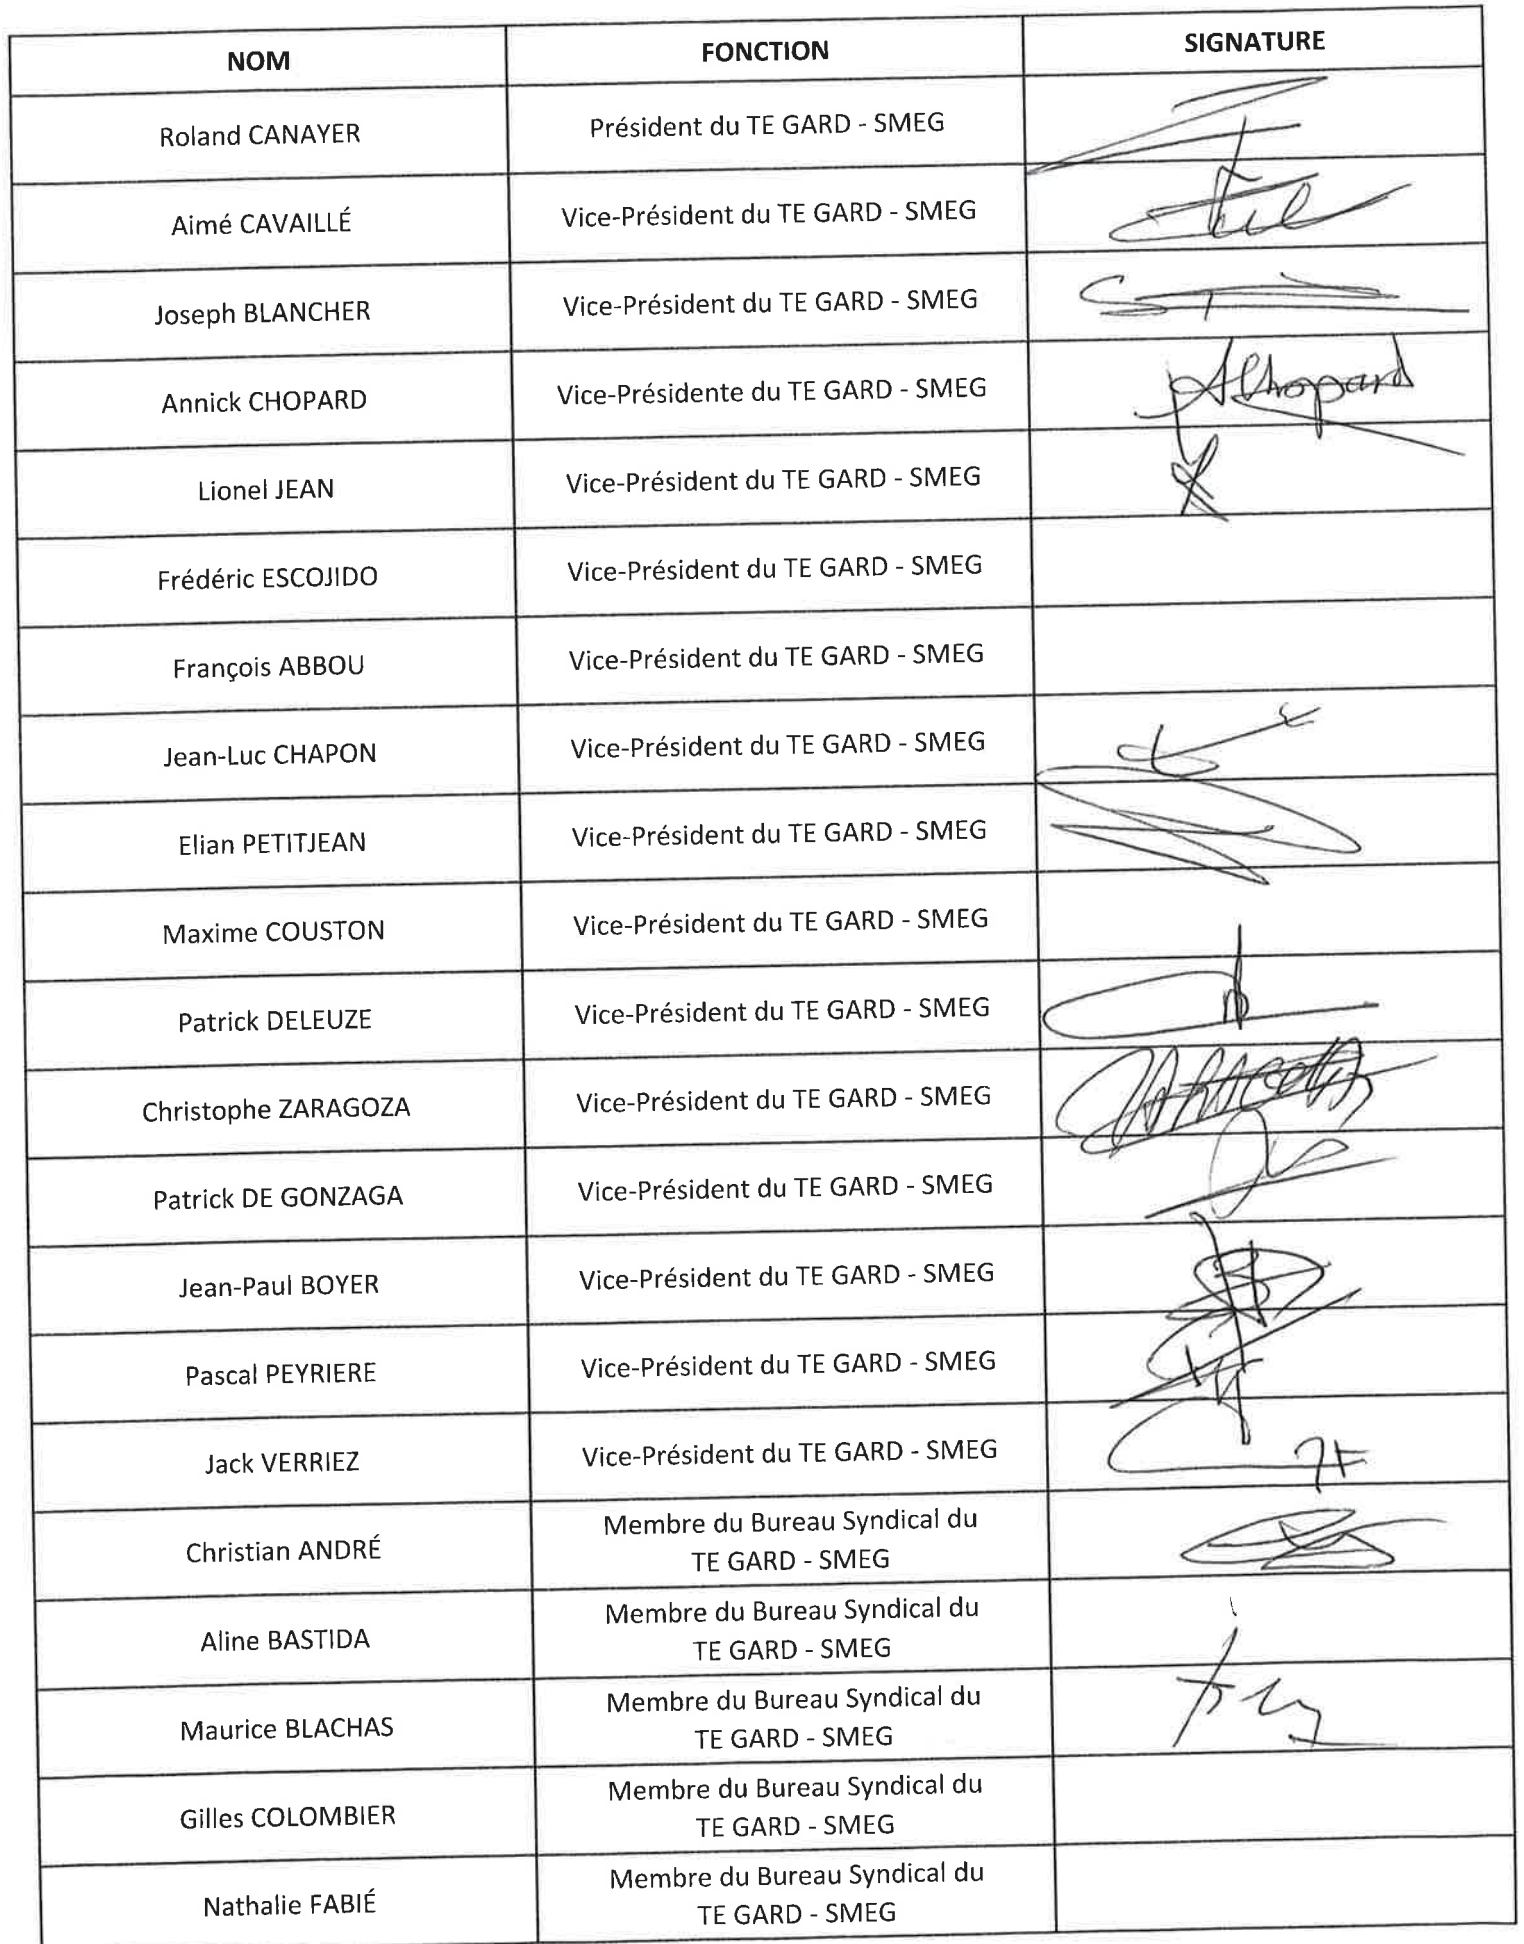 NOM FONCTION SIGNATURE
Roland CANAYER Président du TE GARD - SMEG
Aimé CAVAILLÉ Vice-Président du TE GARD - SMEG
Joseph BLANCHER Vice-Président du TE GARD - SMEG
Annick CHOPARD Vice-Présidente du TE GARD - SMEG AChopard
Lionel JEAN Vice-Président du TE GARD - SMEG
Frédéric ESCOJIDO Vice-Président du TE GARD - SMEG
François ABBOU Vice-Président du TE GARD - SMEG
Jean-Luc CHAPON Vice-Président du TE GARD - SMEG
Elian PETITJEAN Vice-Président du TE GARD - SMEG
Maxime COUSTON Vice-Président du TE GARD - SMEG
Patrick DELEUZE Vice-Président du TE GARD - SMEG
Christophe ZARAGOZA Vice-Président du TE GARD - SMEG
Patrick DE GONZAGA Vice-Président du TE GARD - SMEG
Jean-Paul BOYER Vice-Président du TE GARD - SMEG
Pascal PEYRIERE Vice-Président du TE GARD - SMEG
Jack VERRIEZ Vice-Président du TE GARD - SMEG
Christian ANDRÉ Membre du Bureau Syndical du
TE GARD - SMEG
Aline BASTIDA Membre du Bureau Syndical du
TE GARD - SMEG
Maurice BLACHAS Membre du Bureau Syndical du
TE GARD - SMEG
Gilles COLOMBIER Membre du Bureau Syndical du
TE GARD - SMEG
Nathalie FABIÉ Membre du Bureau Syndical du
TE GARD - SMEG